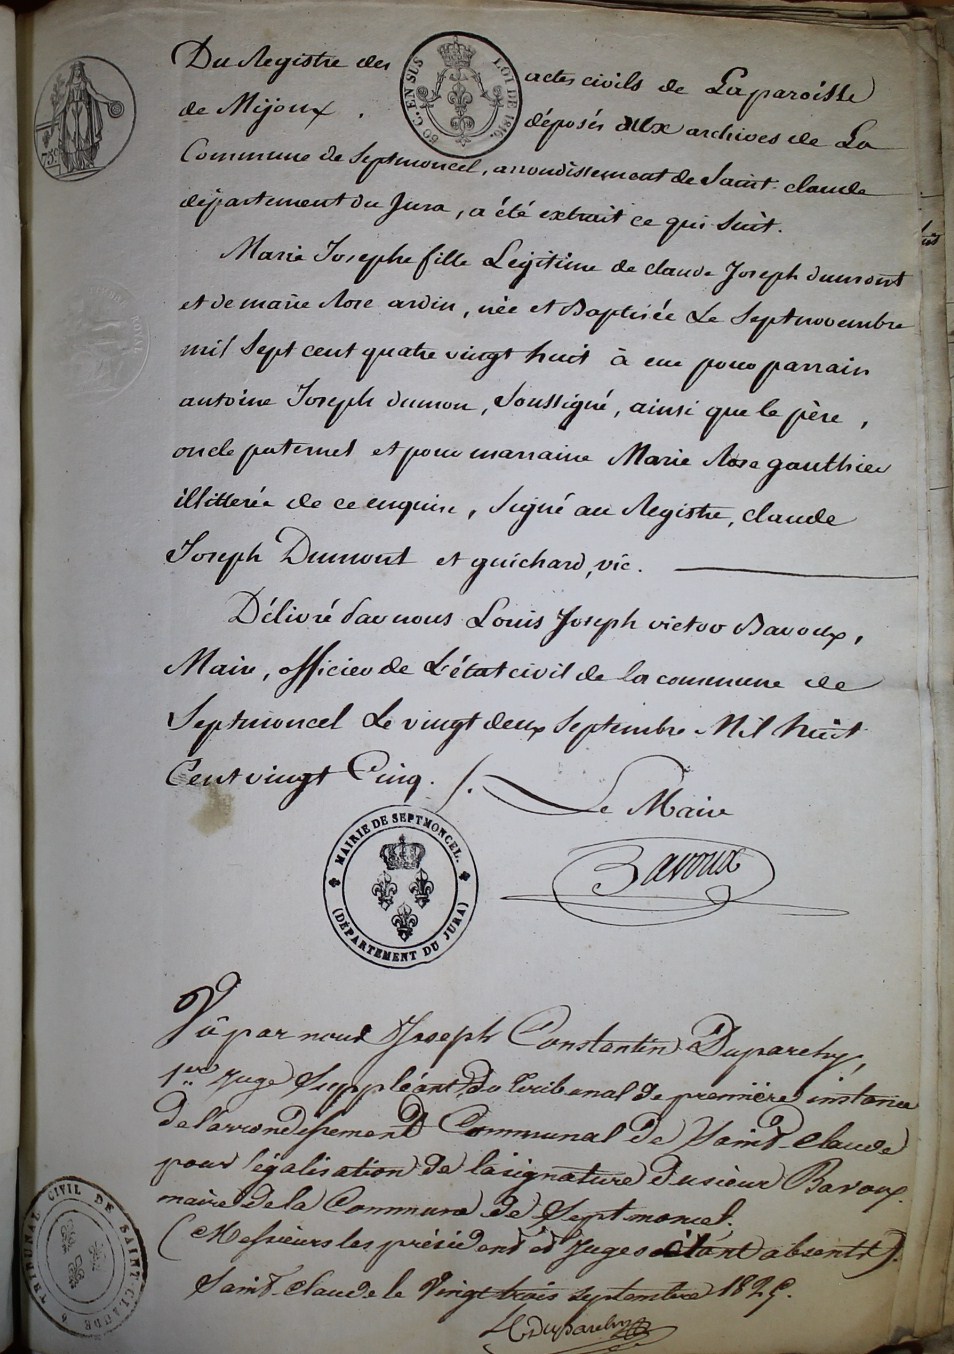 Du Registre des actes civils de Laparoisse
de Mijoux. déposés aux archives de La
Commune de Septmoncel, arrondissement de Saint-claude
département du Jura, a été extrait ce qui Suit.
Marie Josephe fille Légitime de claude Joseph dumont
et de marie Rose ardin, née et Baptisée Le Sept novembre
mil Sept cent quatre vingt huit à eu pour parrain
antoine Joseph dumon, Soussigné, ainsi que le père,
oncle paternel et pour marraine Marie Rose gauthier
illitterée de ce enquise, Signé au Registre, claude
Joseph Dumont et guichard, vic.
Délivré par nous Louis Joseph victor Bavoux,
Maire, officier de L'état civil de la commune de
Septmoncel Le vingt deux Septembre Mil huit
Cent vingt Cinq.
Le Maire
Bavoux
MAIRIE DE SEPTMONCEL.
(DÉPARTEMENT DU JURA)
Vû par nous Joseph Constantin Duparchy,
1er Juge Suppléant du tribunal de première instance
de l'arrondissement Communal de Saint-Claude
pour légalisation de la signature du sieur Bavoux
maire de la Commune de Septmoncel.
(Messieurs les président et Juges étant absents).
Saint-Claude le Vingt trois septembre 1825.
Duparchy
60 C. EN SUS
LOI DE 1816.
75c
TRIBUNAL CIVIL DE SAINT-CLAUDE